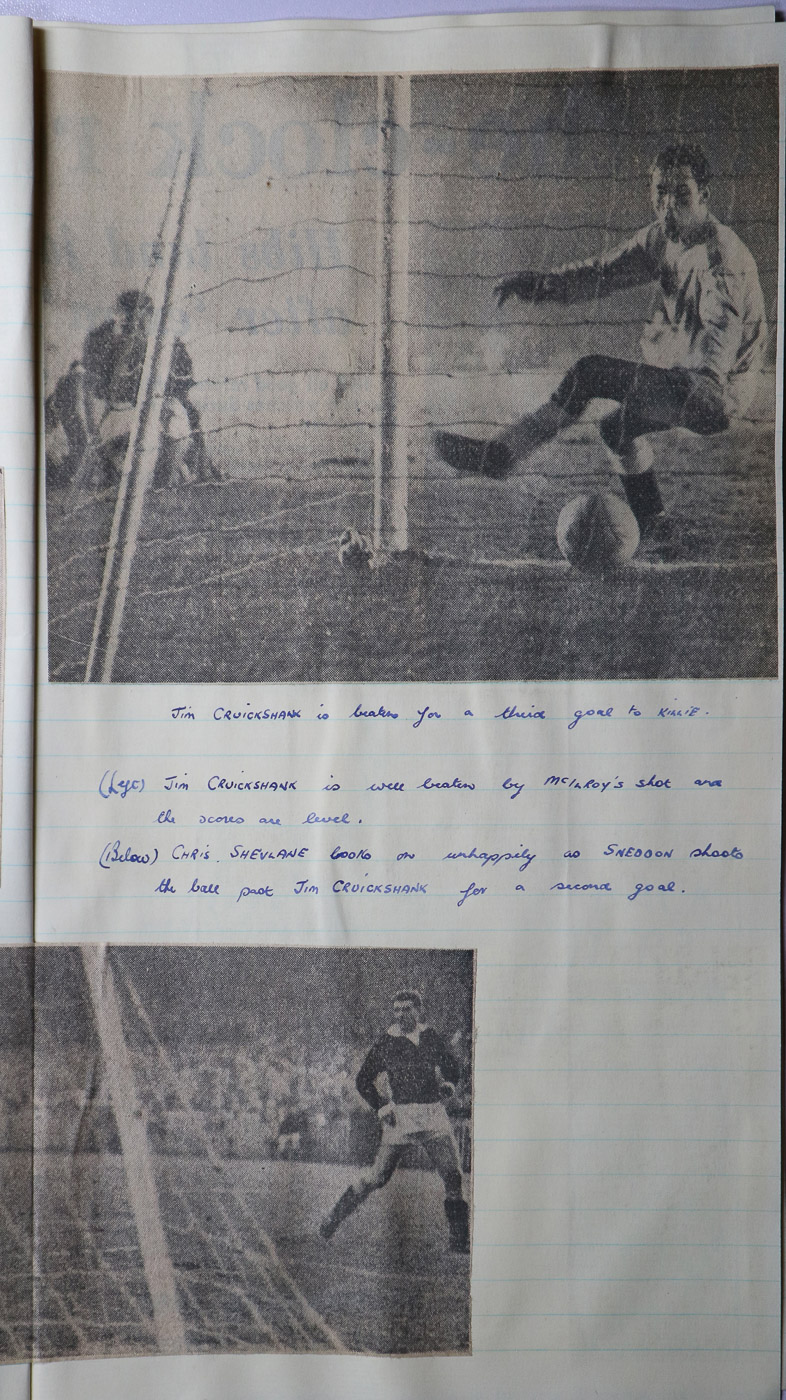 Jim CRUICKSHANK is beaten for a third goal to KILLIE.
(Left) Jim CRUICKSHANK is well beaten by McILROY's shot and
the scores are level.
(Below) CHRIS. SHEVLANE looks on unhappily as SNEDDON shoots
the ball past Jim CRUICKSHANK for a second goal.